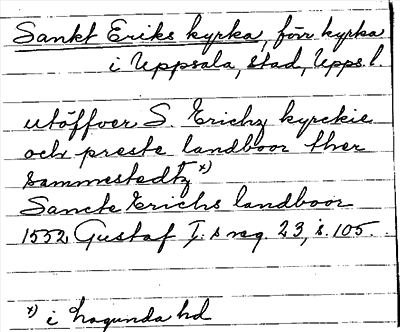 Sankt Eriks kyrka, förr kyrka
i Uppsala, stad, Upps. l.
utöffver S. Erichz kyrckie
och preste landboor ther
sammestedtz x)
Sancte Erichs landboor
1552 Gustaf I:s reg. 23, s. 105.
x) i Hagunda hd